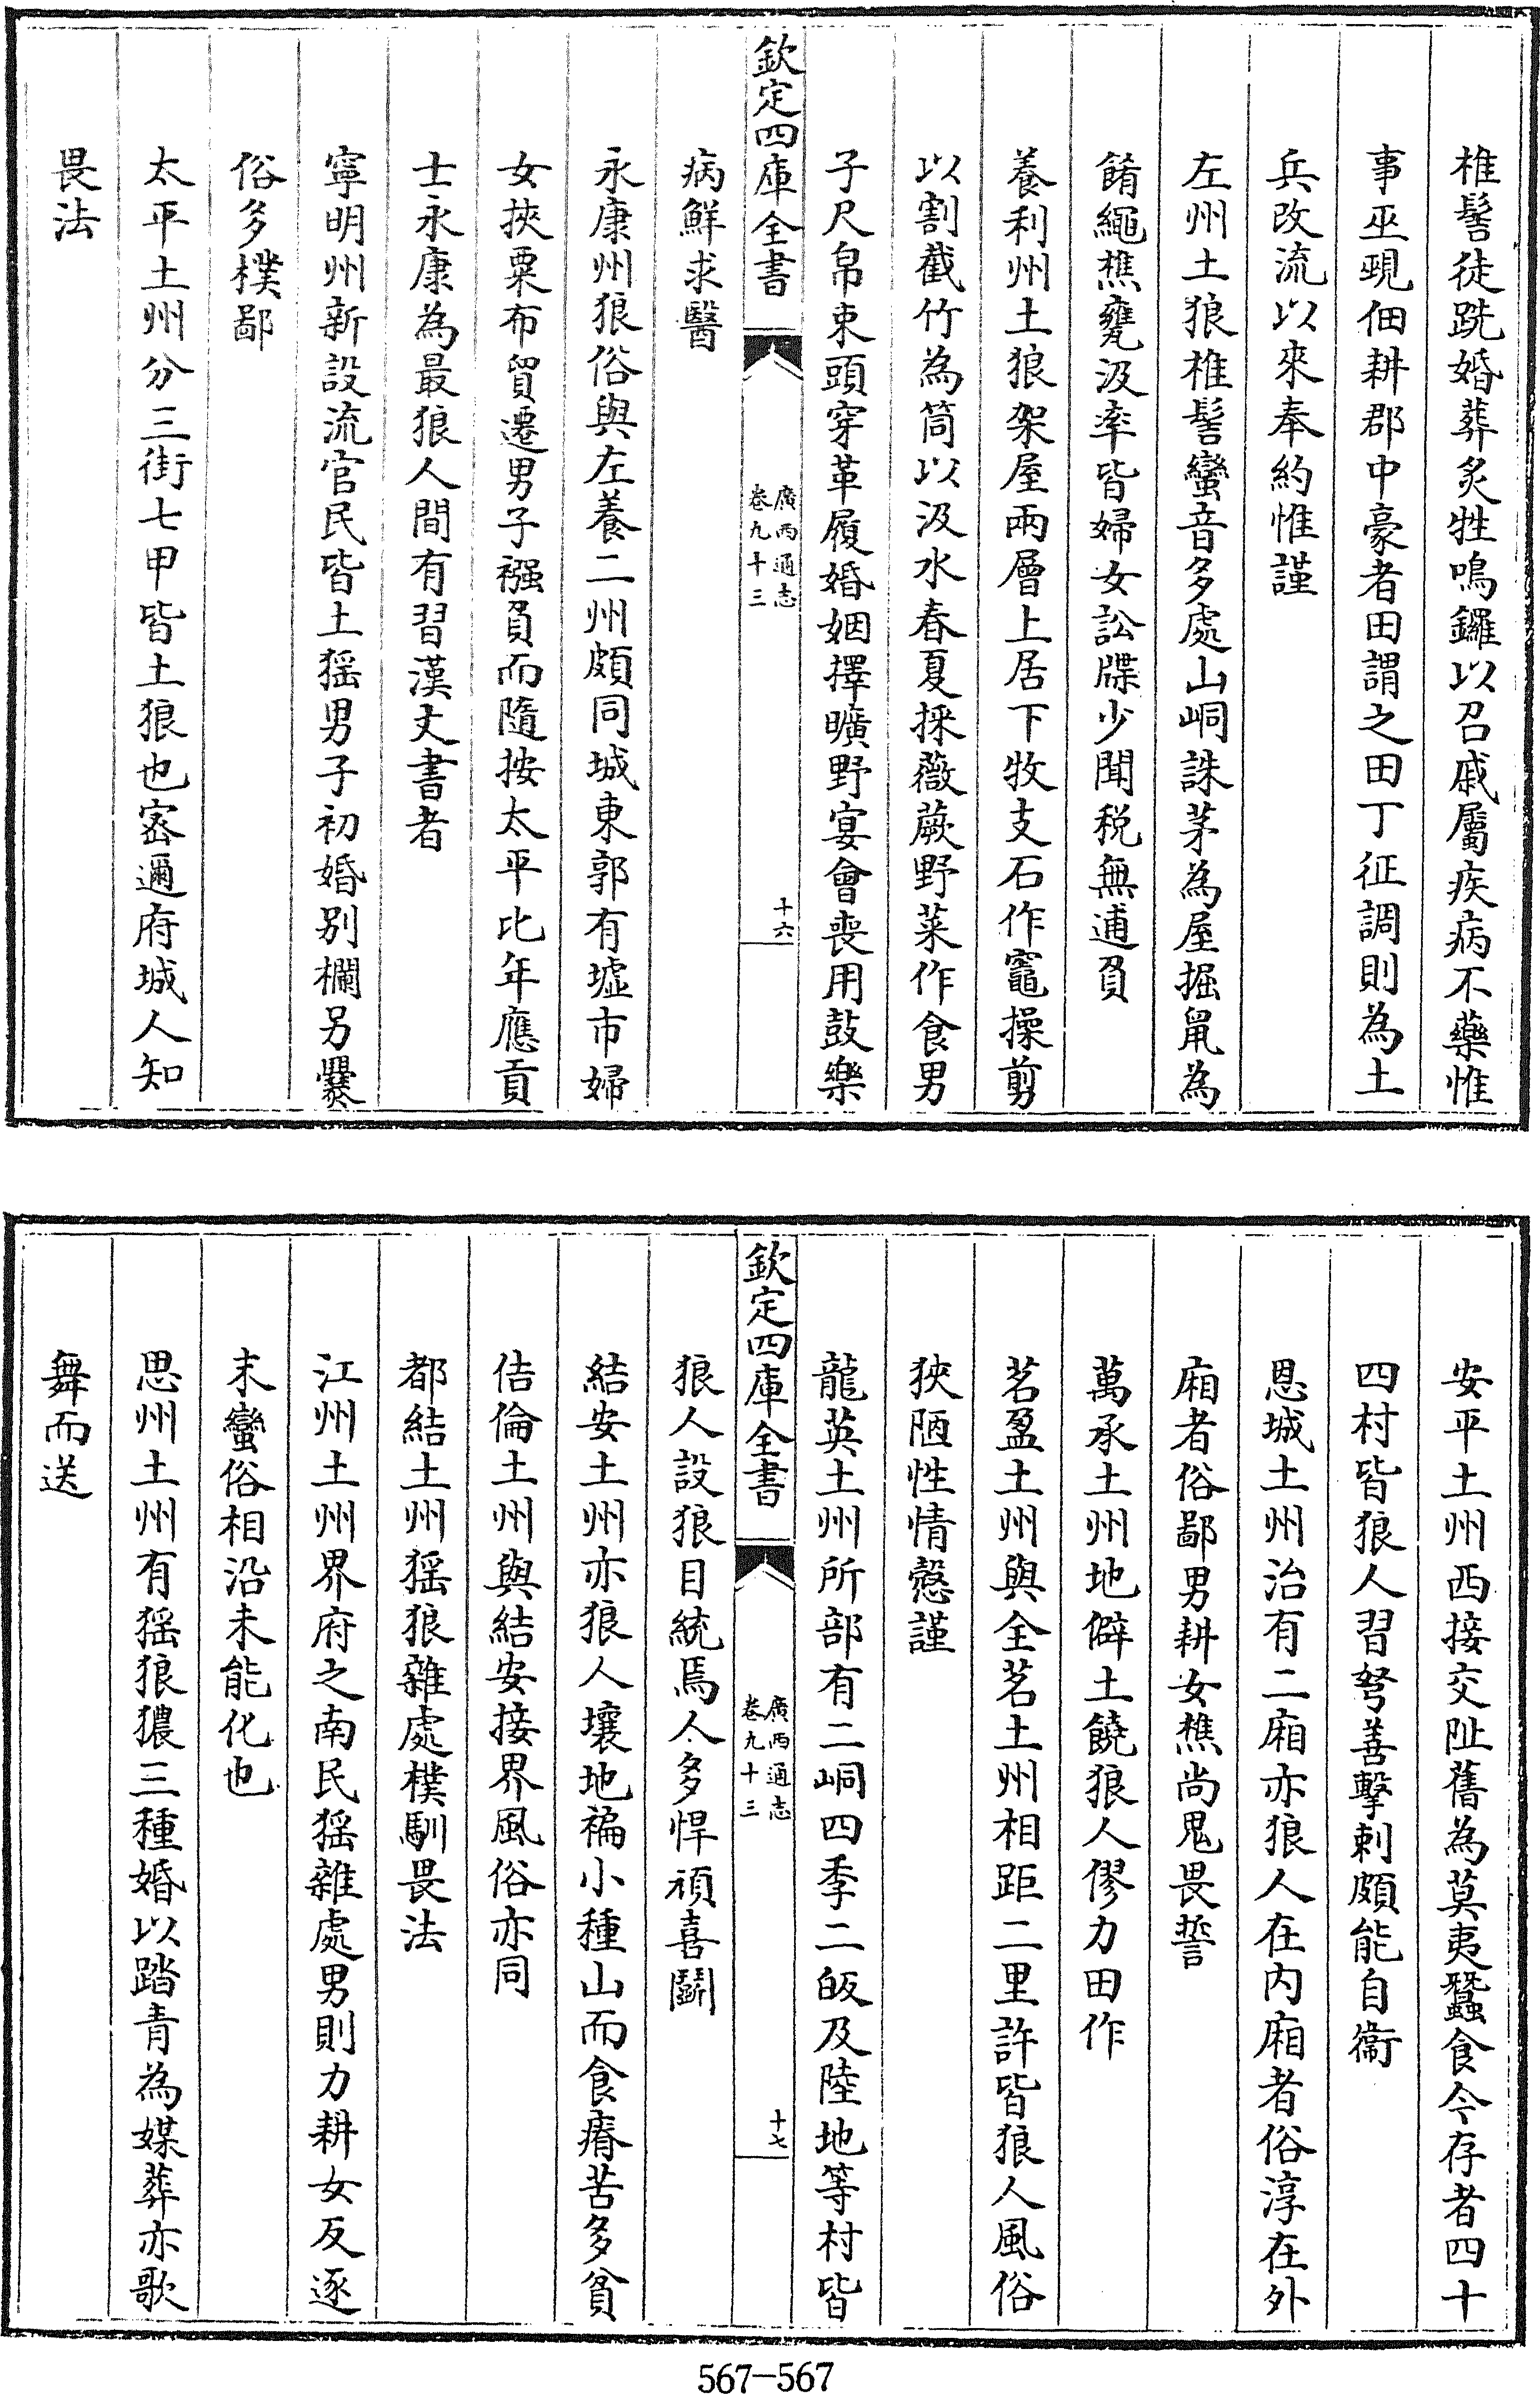 椎髻徒跣婚葬炙牲鳴鑼以召戚屬疾病不藥惟
事巫覡佃耕郡中豪者田謂之田丁征調則為土
兵改流以來奉約惟謹
左州土狼椎髻蠻音多處山峒誅茅為屋掘鼠為
餚繩樵甕汲率皆婦女訟牒少聞税無逋負
養利州土狼架屋兩層上居下牧支石作竈操剪
以割截竹為筒以汲水春夏採薇蕨野菜作食男
子尺帛束頭穿革履婚姻擇曠野宴會喪用鼓樂
欽定四庫全書
廣西通志
卷九十三
十六
病鮮求醫
永康州狼俗與左養二州頗同城東郭有墟市婦
女挾粟布貿遷男子襁負而隨按太平比年應貢
士永康為最狼人間有習漢文書者
寧明州新設流官民皆土猺男子初婚別欄另爨
俗多樸鄙
太平土州分三街七甲皆土狼也宻邇府城人知
畏法
安平土州西接交阯舊為莫夷蠶食今存者四十
四村皆狼人習弩善擊刺頗能自衞
恩城土州治有二廂亦狼人在内廂者俗淳在外
廂者俗鄙男耕女樵尚鬼畏誓
萬承土州地僻土饒狼人僇力田作
茗盈土州與全茗土州相距二里許皆狼人風俗
狹陋性情慤謹
龍英土州所部有二峒四季二皈及陸地等村皆
欽定四庫全書
廣西通志
卷九十三
十七
狼人設狼目統焉人多悍頑喜鬭
結安土州亦狼人壤地褊小種山而食瘠苦多貧
佶倫土州與結安接界風俗亦同
都結土州猺狼雜處樸馴畏法
江州土州界府之南民猺雜處男則力耕女反逐
末蠻俗相沿未能化也
思州土州有猺狼獞三種婚以踏青為媒葬亦歌
舞而送
567—567